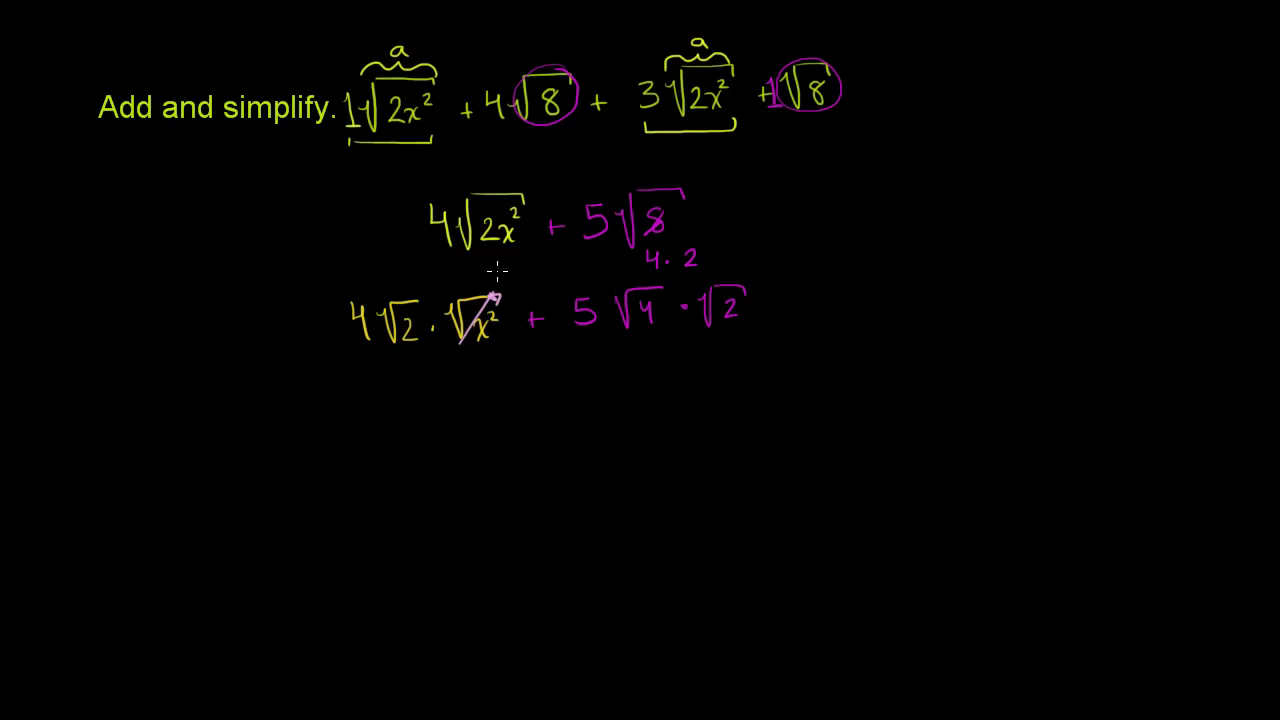 a a
Add and simplify. 1√(2x²) + 4√8 + 3√(2x²) + 1√8
4√(2x²) + 5√8
4 · 2
4√2 · √x² + 5 √4 · √2